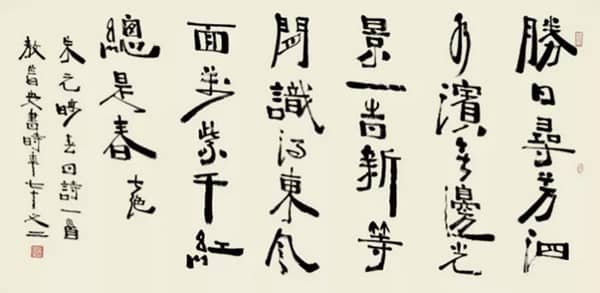 勝日尋芳泗
水濱無邊光
景一峕新等
閒識得東風
面萬紫千紅
總是春 七絶
朱元晦春日詩一首
敖普安書時年七十又二